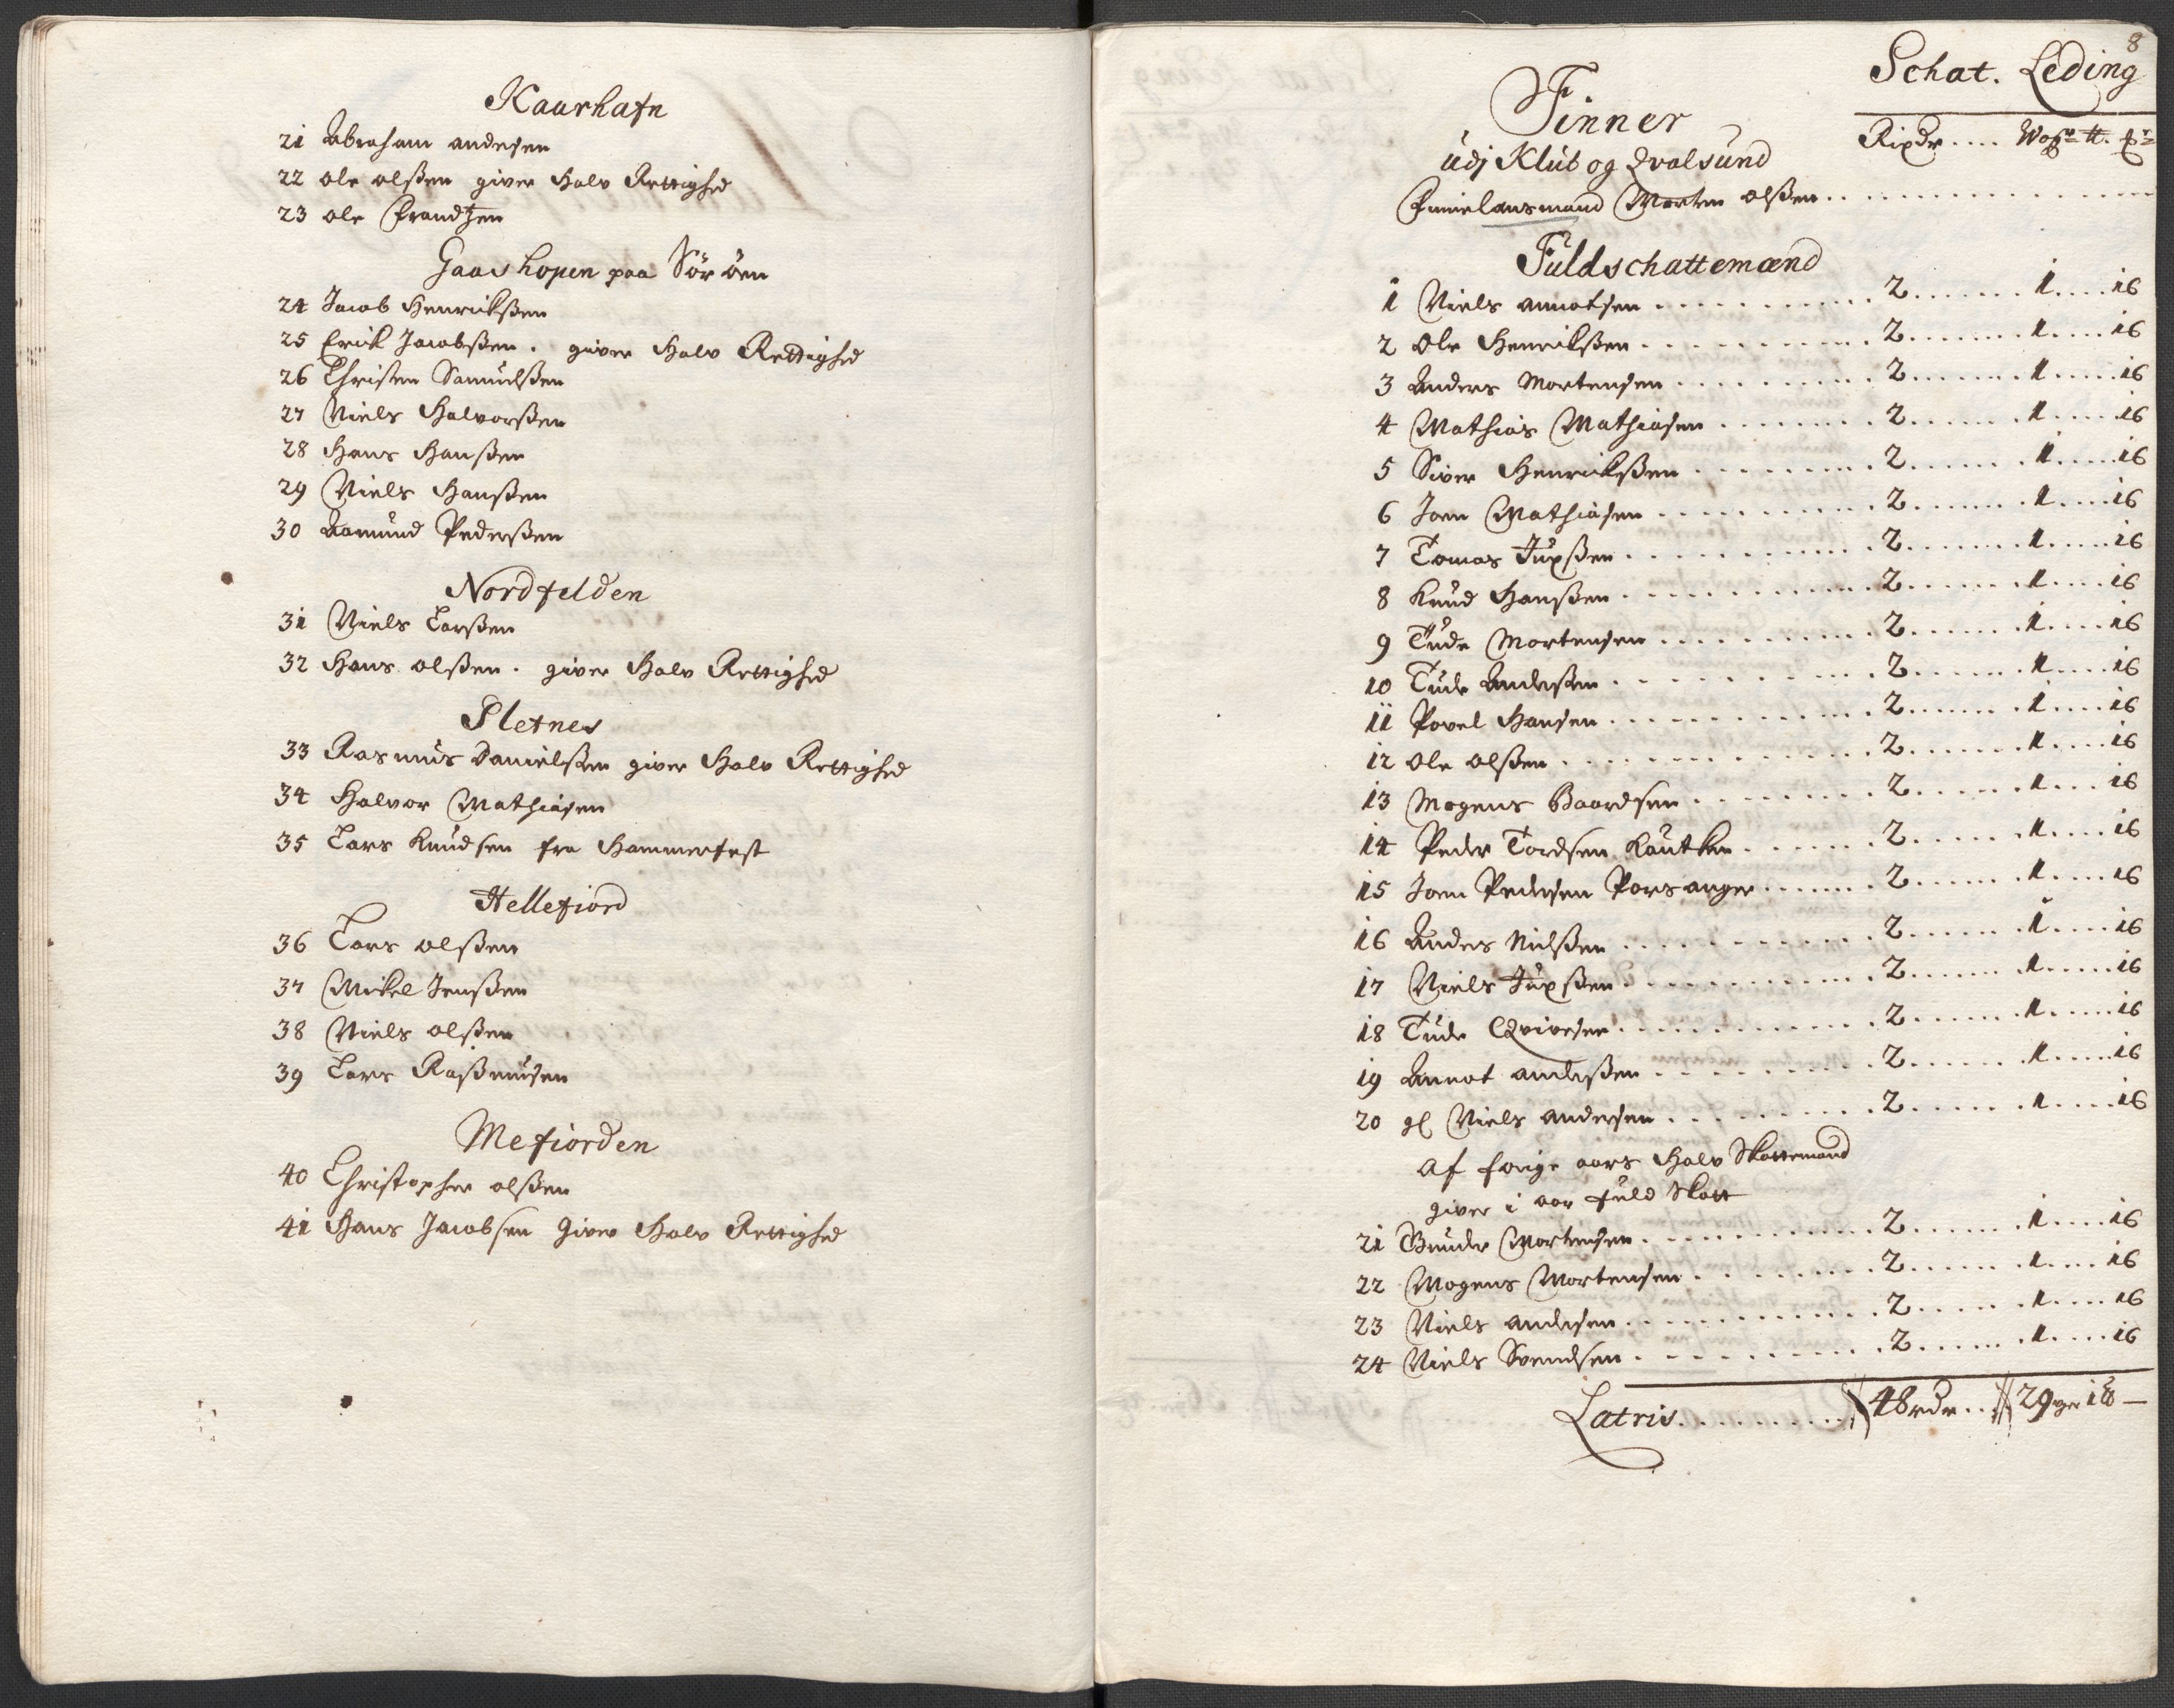 Kaarhafn
21 Abraham andersen
22 ole olßen giver Halv Rettighed
23 ole Frandtzen
Gaashopen paa Sör öen
24 Jacob Henrichßen
25 Erich Jacobßen. giver Halv Rettighed
26 Christen Samuelßen
27 Niels Halvorßen
28 Hans Hanßen
29 Niels Hanßen
30 Aamund Pederßen
Nordfelden
31 Niels Larßen
32 Hans olßen. giver Halv Rettighed
Sletnes
33 Rasmus Danielßen giver Halv Rettighed
34 Halvor Mathiasen
35 Lars Knudsen fra Hammerfest
Hellefiord
36 Lars olßen
37 Mikel Jenßen
38 Niels olßen
39 Lars Raßmusen
Mefiorden
40 Christopher olßen
41 Hans Jacobsen Giver Halv Rettighed
8
Schat. Leding
Finner
Rixdr.... Woger ℔.
udj Klub og Qvalsund
Finnelansmand Morten olßen
Fuldschattemænd
1 Niels annotsen 2 1 16
2 Ole Henrikßen 2 1 16
3 Anders Mortensen 2 1 16
4 Mathias Mathiasen 2 1 16
5 Siver Henrichßen 2 1 16
6 Joen Mathiasen 2 1 16
7 Tomas Juxßen 2 1 16
8 Knud Hanßen 2 1 16
9 Tude Mortensen 2 1 16
10 Tude Anderßen 2 1 16
11 Povel Hansen 2 1 16
12 Ole olßen 2 1 16
13 Mogens Baardsen 2 1 16
14 Peder Tordsen Kautken 2 1 16
15 Joen Pedersen Porsanger 2 1 16
16 Anders Nielßen 2 1 16
17 Niels Juxßen 2 1 16
18 Tude Qviveser 2 1 16
19 Annot anderßen 2 1 16
20 gl Niels andersen 2 1 16
Af forige aars Halv Skattemand
giver i aar fuld Skatt
21 Gunder Mortensen 2 1 16
22 Mogens Mortensen 2 1 16
23 Niels andersen 2 1 16
24 Niels Svendsen 2 1 16
Latris 48 rdr 29 wger 1 ℔ —